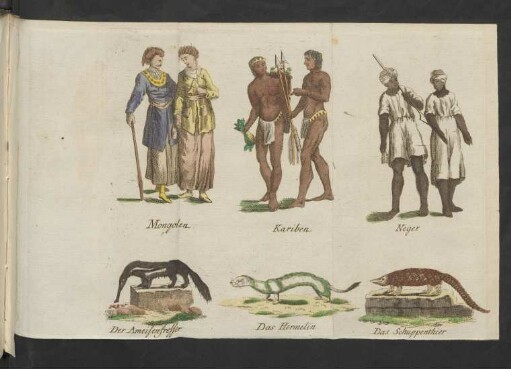 Mongolen
Kariben
Neger
Der Ameisenfresser
Das Hermelin
Das Schuppenthier